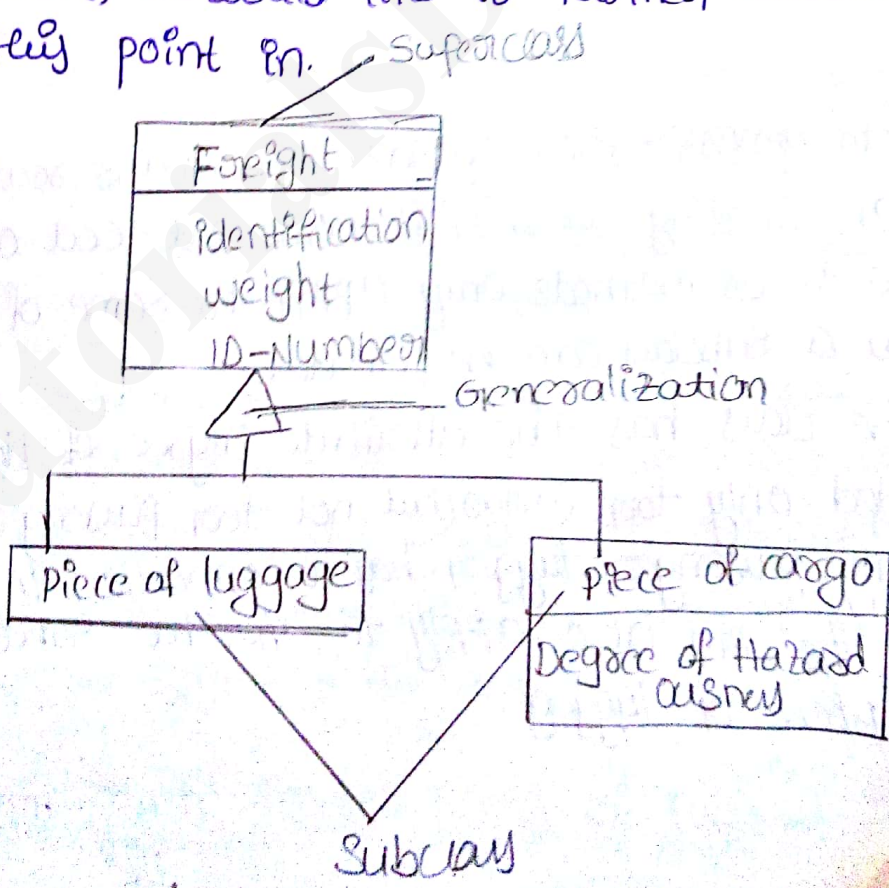 point in.
Superclass
Foreight
identification
weight
ID-Number
Generalization
piece of luggage
piece of cargo
Degree of Hazard
ousness
Subclass